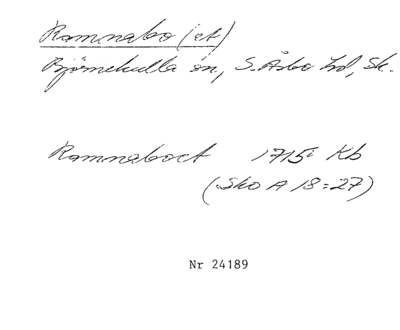 Ramnabo (et)
Björnekulla sn, S. Åsbo hd, Sk.
Ramnaboet 1715 Kb
(Sko A 18:27)
Nr 24189